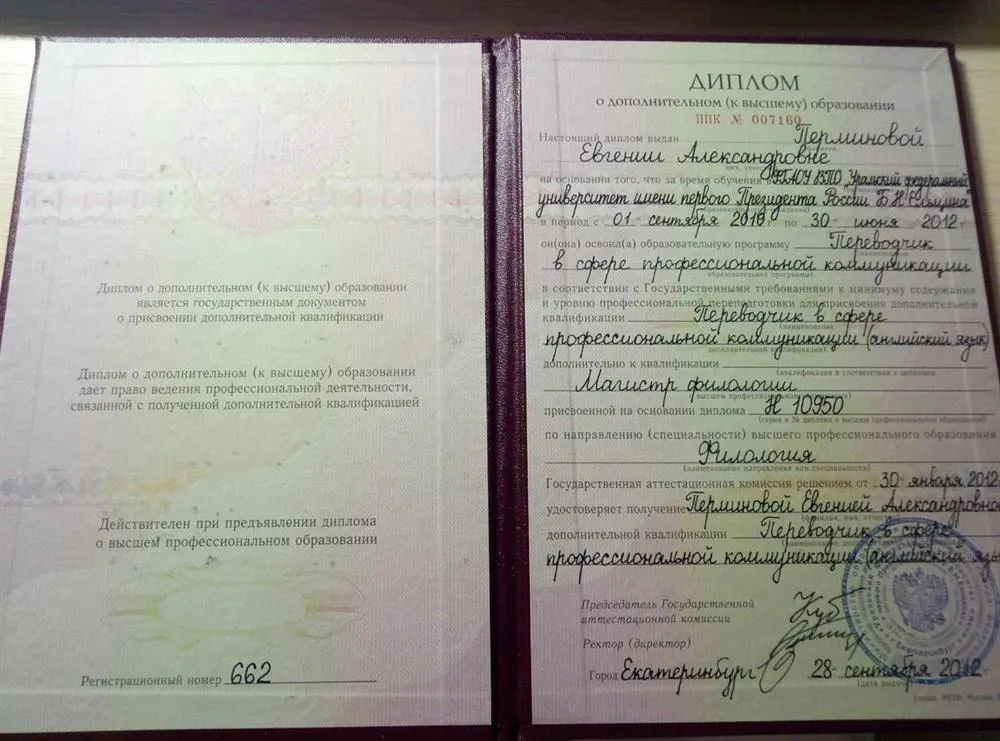 Диплом о дополнительном (к высшему) образовании
является государственным документом
о присвоении дополнительной квалификации
Диплом о дополнительном (к высшему) образовании
дает право ведения профессиональной деятельности,
связанной с полученной дополнительной квалификацией
Действителен при предъявлении диплома
о высшем профессиональном образовании
Регистрационный номер 662
ДИПЛОМ
о дополнительном (к высшему) образовании
ППК № 007160
Настоящий диплом выдан Перминовой
Евгении Александровне
на основании того, что за время обучения в ФГАОУ ВПО "Уральский федеральный
университет имени первого Президента России Б.Н. Ельцина"
в период с "01" сентября 2010 г. по "30" июня 2012 г.
он(она) освоил(а) образовательную программу Переводчик
в сфере профессиональной коммуникации
образовательной программы)
в соответствии с Государственными требованиями к минимуму содержания
и уровню профессиональной переподготовки для присвоения дополнительной
квалификации Переводчик в сфере
(наименование
профессиональной коммуникации (английский язык)
дополнительной квалификации)
дополнительно к квалификации
(квалификация в соответствии с дипломом
Магистр филологии
о высшем профессиональном образовании)
присвоенной на основании диплома Н 10950
(серия и № диплома о высшем профессиональном образовании)
по направлению (специальности) высшего профессионального образования
Филология
(наименование направления или специальности)
Государственная аттестационная комиссия решением от "30" января 2012
удостоверяет получение Перминовой Евгенией Александровно
(фамилия, имя, отчество)
дополнительной квалификации Переводчик в сфере
профессиональной коммуникации (английский язы
Председатель Государственной
аттестационной комиссии
Ректор (директор)
Город Екатеринбург 28 сентября 2012
(дата выдачи)
Екатеринбург